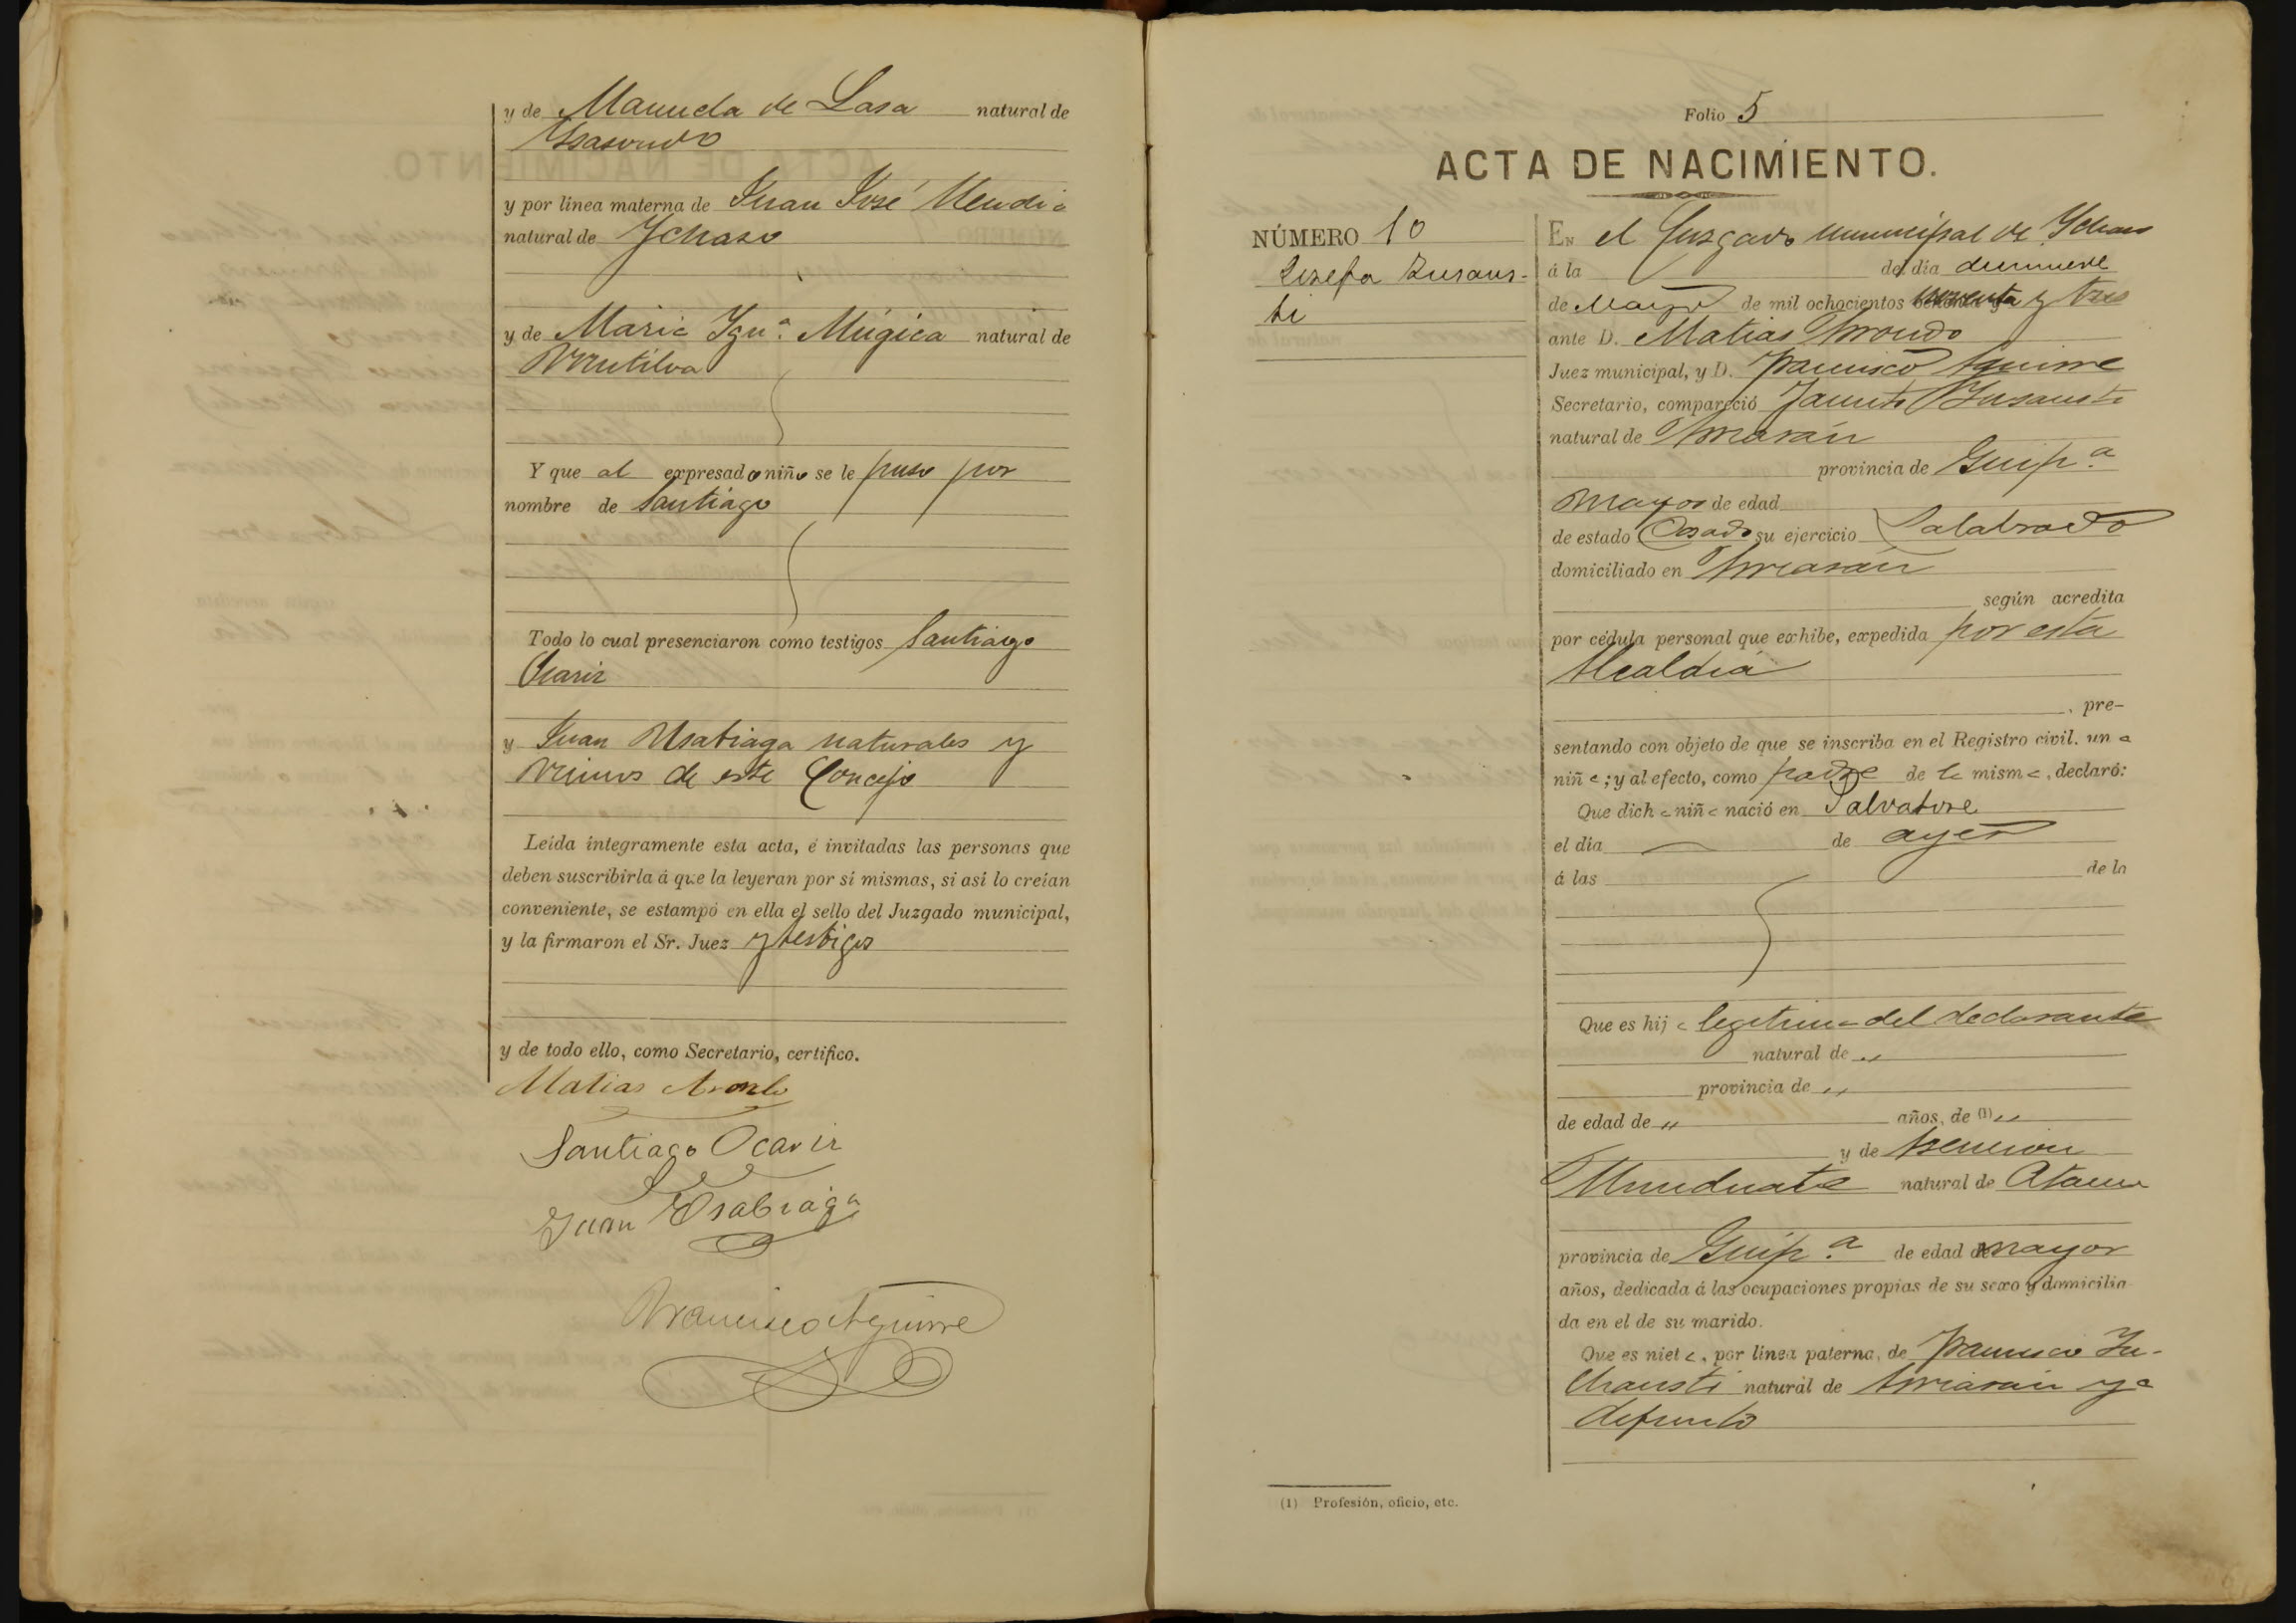 y de Manuela de Lasa natural de
Ysasondo
y por línea materna de Juan José Mendia
natural de Ychaso
y de Maria Ign.ª Múgica natural de
Mutiloa
Y que al expresado niño se le puso por
nombre de Santiago
Todo lo cual presenciaron como testigos Santiago
Ocariz
y Juan Usabiaga naturales y
vecinos de este Concejo
Leída íntegramente esta acta, é invitadas las personas que
deben suscribirla á que la leyeran por sí mismas, si así lo creían
conveniente, se estampó en ella el sello del Juzgado municipal,
y la firmaron el Sr. Juez y testigos
y de todo ello, como Secretario, certifico.
Matias Arrondo
Santiago Ocariz
Juan Usabiaga
Francisco Aguirre
Folio 5
ACTA DE NACIMIENTO.
NÚMERO 10
Josefa Insaus-
ti
En el Juzgado municipal de Ychaso
á la del día diecinueve
de Mayo de mil ochocientos noventa y tres
ante D. Matias Arrondo
Juez municipal, y D. Francisco Aguirre
Secretario, compareció Jacinto Insausti
natural de Arriarán
provincia de Guip.ª
mayor de edad
de estado Casado su ejercicio
domiciliado en Arriarán
según acredita
por cédula personal que exhibe, expedida por esta
Alcaldia
, pre-
sentando con objeto de que se inscriba en el Registro civil, un a
niña; y al efecto, como padre de la misma, declaró:
Que dicha niña nació en Salvatore
el día de ayer
á las de la
Que es hija legitima del declarante
natural de "
provincia de "
de edad de " años, de (1) "
y de Asencion
Munduate natural de Ataun
provincia de Guip.ª de edad de mayor
años, dedicada á las ocupaciones propias de su sexo y domicilia
da en el de su marido.
Que es nieta, por línea paterna, de Francisco In-
sausti natural de Arriarán ya
difunto
(1) Profesión, oficio, etc.